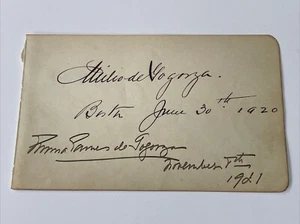 Emilio de Gogorza.
Boston June 30th 1920
Emma Eames de Gogorza
November 7th
1921